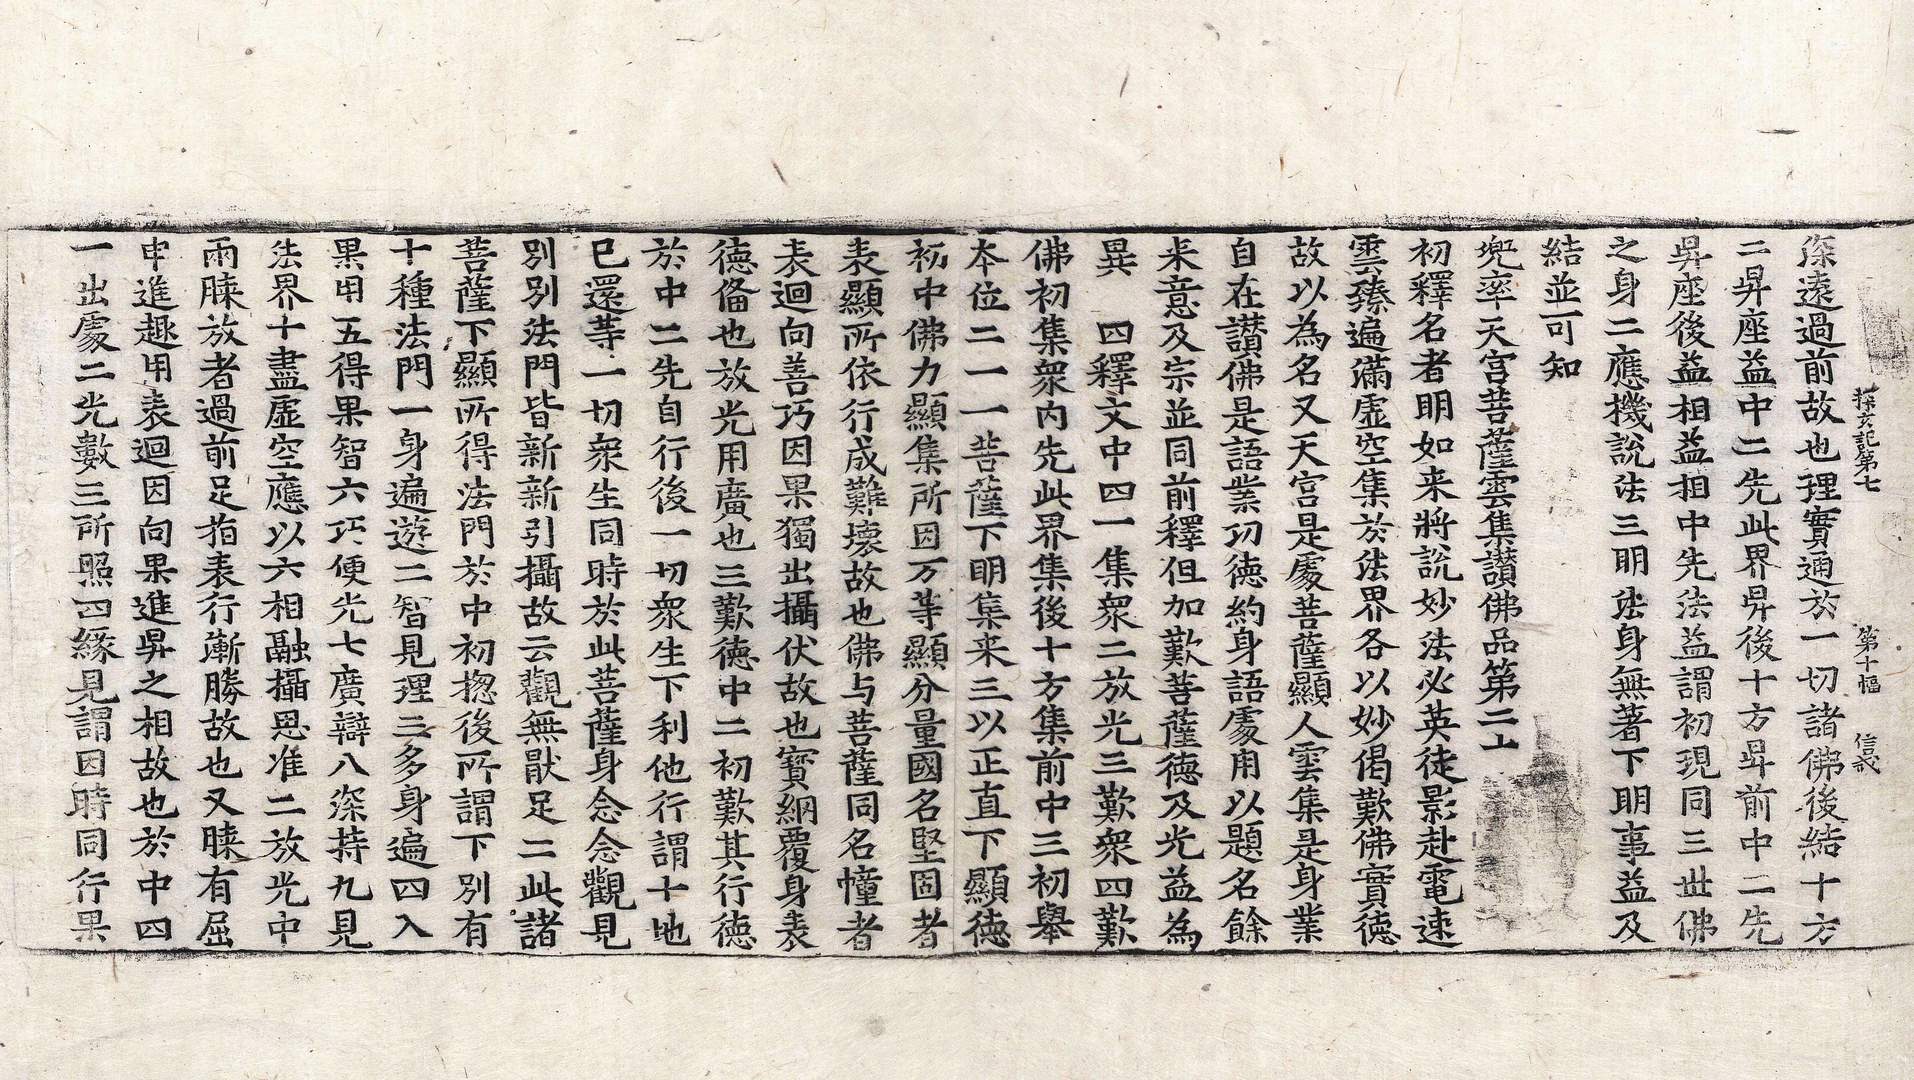 探玄記第七 第十幅 信戒
深遠過前故也理實通於一切諸佛後結十方
二昇座益中二先此界昇後十方昇前中二先
昇座後益相益相中先法益謂初現同三世佛
之身二應機說法三明法身無著下明事益及
結並可知
兜率天宮菩薩雲集讃佛品第二十
初釋名者明如来將說妙法必英徒影赴電速
雲臻遍滿虛空集於法界各以妙偈歎佛實德
故以為名又天宮是處菩薩顯人雲集是身業
自在讃佛是語業功德約身語處用以題名餘
来意及宗並同前釋但加歎菩薩德及光益為
異 四釋文中四一集衆二放光三歎衆四歎
佛初集衆內先此界集後十方集前中三初舉
本位二一一菩薩下明集来三以正直下顯德
初中佛力顯集所因万等顯分量國名堅固者
表顯所依行成難壞故也佛与菩薩同名幢者
表迴向善巧因果獨出攝伏故也寶網覆身表
德俻也放光用廣也三歎德中二初歎其行德
於中二先自行後一切衆生下利他行謂十地
已還等一切衆生同時於此菩薩身念念觀見
別別法門皆新新引攝故云觀無猒足二此諸
菩薩下顯所得法門於中初揔後所謂下別有
十種法門一身遍遊二智見理三多身遍四入
果用五得果智六巧便光七廣辯八深持九見
法界十盡虛空應以六相融攝思准二放光中
兩膝放者過前足指表行漸勝故也又膝有屈
申進趣用表迴因向果進昇之相故也於中四
一出處二光數三所照四緣見謂因時同行果